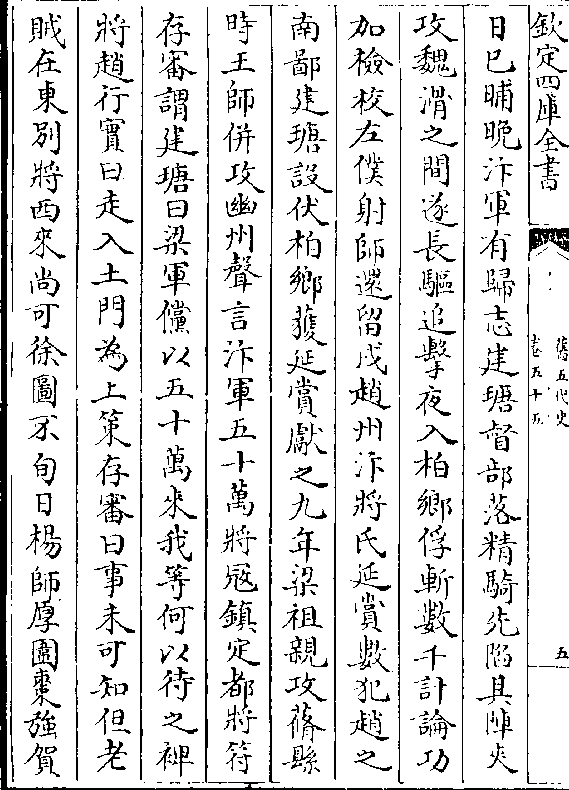 欽定四庫全書
舊五代史
卷五十五
五
日已晡晚汴軍有歸志建瑭督部落精騎先陷其陣夾
攻魏滑之間遂長驅追擊夜入柏鄉俘斬數千計論功
加檢校左僕射師還留戍趙州汴將氏延賞數犯趙之
南鄙建瑭設伏柏鄉獲延賞獻之九年梁祖親攻蓨縣
時王師併攻幽州聲言汴軍五十萬將寇鎮定都將符
存審謂建瑭曰梁軍儻以五十萬來我等何以待之裨
將趙行實曰走入土門為上策存審曰事未可知但老
賊在東別將西來尚可徐圖不旬日楊師厚圍棗強賀